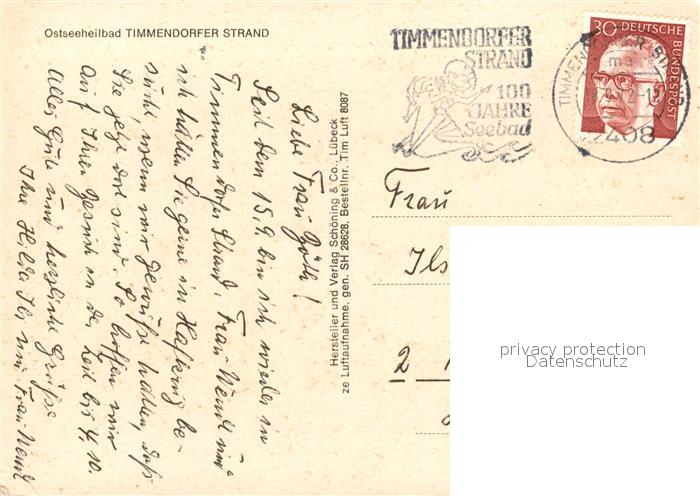 Ostseeheilbad TIMMENDORFER STRAND
TIMMENDORFER
STRAND
100
JAHRE
Seebad
TIMMENDORFER
2408
30 DEUTSCHE
BUNDESPOST
Liebe Frau Göth!
Seit dem 15.9. bin ich wieder in
Timmendorfer Strand. Frau Wendt und
ich hätten Sie gerne in Haffkrug be-
sucht wenn wir gewußt hätten, daß
Sie jetzt dort sind. So hoffen wir
auf Ihren Besuch in der Zeit bis 4.10.
Alles Gute und herzliche Grüße
Ihre Hilde Ils und Frau Wendt
Hersteller und Verlag Schöning & Co., Lübeck
ze Luftaufnahme, gen. SH 28628, Bestellnr. Tim Luft 8087
Frau
Ils
2
privacy protection
Datenschutz